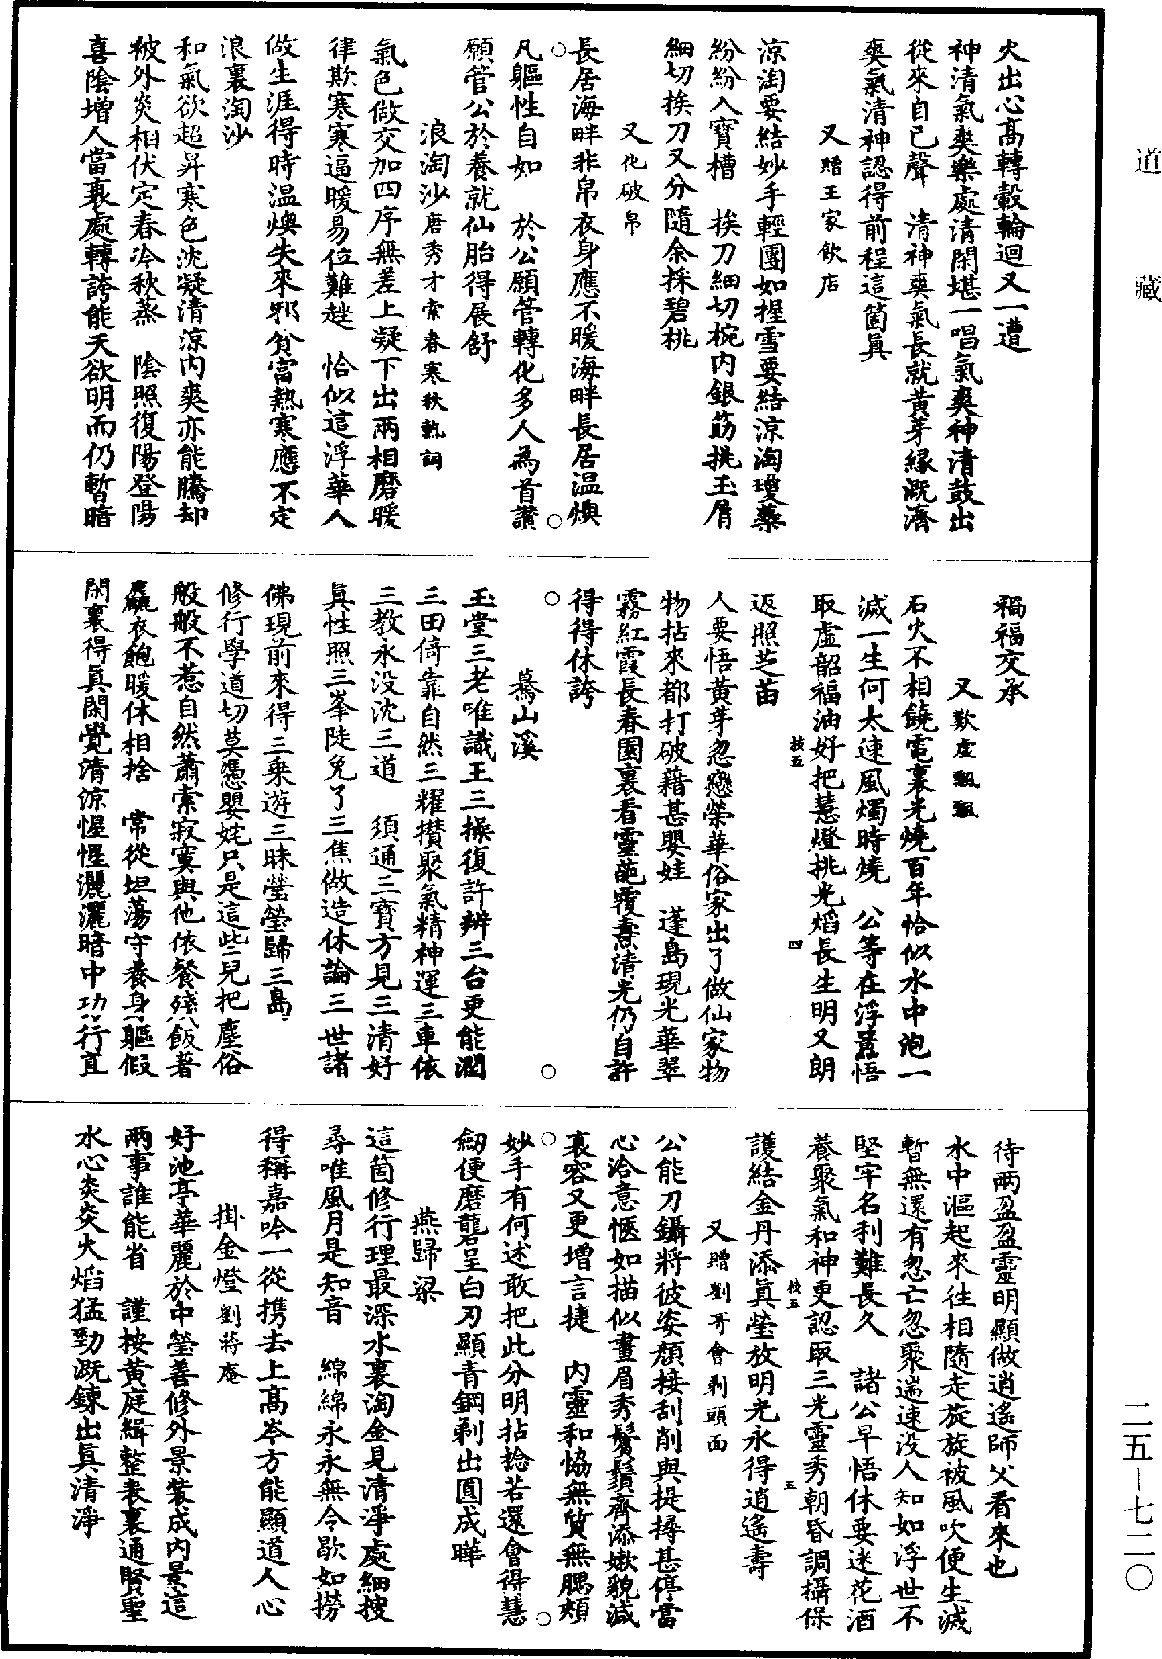 道藏
火出心高轉轂輪迴又一遭
神清氣爽樂處清閑堪一唱氣爽神清鼓出
從來自己聲　清神爽氣長就黃芽緣溉濟
爽氣清神認得前程這箇眞
又贈王家飲店
涼淘要結妙手輕團如握雪要結涼淘瓊蘂
紛紛入寶槽　挨刀細切椀內銀筯挑玉屑
細切挨刀又分隨余採碧桃
又化破帛
長居海畔非帛衣身應不暖海畔長居溫燠
凡軀性自如　於公願管轉化多人為首讚
願管公於養就仙胎得展舒
浪淘沙唐秀才索春寒秋熱詞
氣色做交加四序無差上凝下出兩相磨暖
律欺寒寒逼暖易位難趖　恰似這浮華人
做生涯得時溫燠失來邪貧富熱寒應不定
浪裏淘沙
和氣欲超昇寒色沈凝清涼內爽亦能騰却
被外炎相伏定春冷秋蒸　陰照復陽登陽
喜陰增人當裏處轉誇能天欲明而仍暫暗
禍福交承
又歎虛飄飄
石火不相饒電裏光燒百年恰似水中泡一
滅一生何太速風燭時燒　公等在浮囂悟
取虛韶福油好把慧燈挑光焰長生明又朗
返照芝苗
人要悟黃芽忽戀榮華俗家出了做仙家物
物拈來都打破藉甚嬰娃　蓬島現光華翠
霧紅霞長春園裏看靈葩覆燾清光仍自許
得得休誇
驀山溪
玉堂三老唯識王三操復許辨三台更能潤
三田倚靠自然三耀攢聚氣精神運三車依
三教永没沈三道　須通三寶方見三清好
眞性照三峯陡免了三焦做造休論三世諸
佛現前來得三乘遊三昧瑩瑩歸三島
修行學道切莫憑嬰姹只是這些兒把塵俗
般般不惹自然蕭索寂寞與他依餐殘飯著
麤衣飽暖休相捨　常從坦蕩守養身軀假
閑裏得眞閑覺清涼惺惺灑灑暗中功行直
待兩盈盈靈明顯做逍遙師父看來也
水中漚起來往相隨走旋旋被風吹便生滅
暫無還有忽亡忽聚遄速没人知如浮世不
堅牢名利難長久　諸公早悟休要迷花酒
養聚氣和神更認取三光靈秀朝昏調攝保
護結金丹添眞瑩放明光永得逍遙壽
又贈劉哥會剃頭面
公能刀鑷將彼姿顏接刮削與提撏甚停當
心洽意愜如描似畫眉秀鬢鬚齊添嫩貌減
衰容又更增言捷　內靈和恊無質無腮頰
妙手有何述敢把此分明拈捻若還會得慧
劒便磨礲呈白刃顯青鋼剃出圓成曄
燕歸梁
這箇修行理最深水裏淘金見清淨處細搜
尋唯風月是知音　綿綿永永無令歇如撈
得稱嘉吟一從携去上高岑方能顯道人心
掛金燈劉蔣庵
好池亭華麗於中瑩善修外景裝成內景這
兩事誰能省　謹按黃庭緝整表裏通賢聖
水心炎炎火焰猛勁溉鍊出眞清淨
二五—七二〇